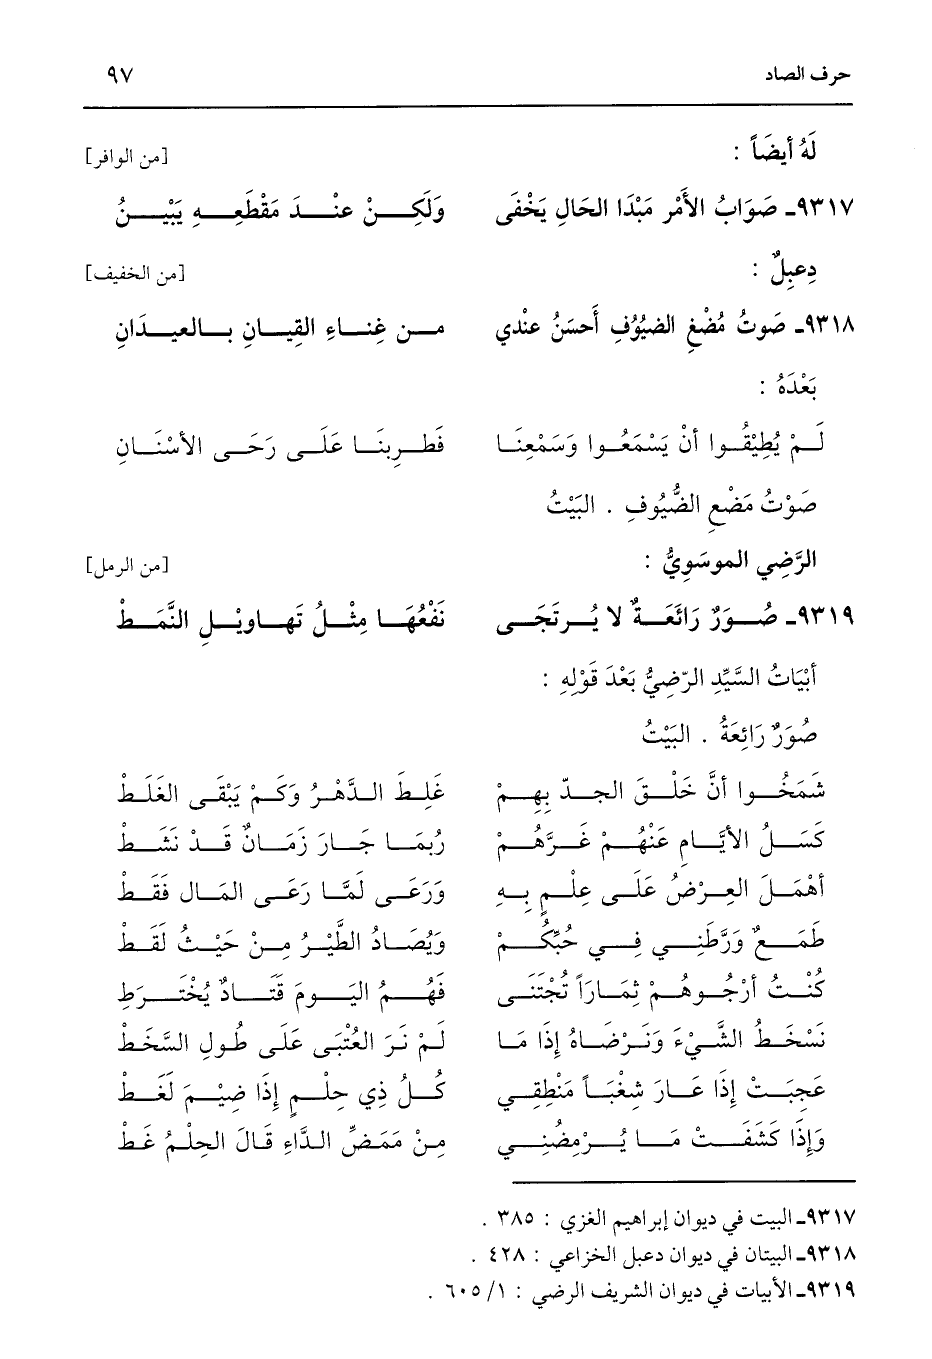 حرف الصاد ٩٧
لَهُ أيضَاً : [من الوافر]
٩٣١٧ـ صَوَابُ الأَمْرِ مَبْدَا الحَالِ يَخْفَى وَلَكِنْ عنْدَ مَقْطَعِهِ يَبْيِنُ
دِعبِلٌ : [من الخفيف]
٩٣١٨ـ صَوتُ مُضْغِ الضيُوُفِ أَحسَنُ عندي من غِناءِ القِيانِ بالعيدَانِ
بَعْدَهُ :
لَمْ يُطِيْقُوا أنْ يَسْمَعُوا وَسَمْعِنَا فَطرِبنَا عَلَى رَحَى الأسْنَانِ
صَوْتُ مَضْعِ الضُّيُوفِ . البَيْتُ
الرَّضِي الموسَوِيُّ : [من الرمل]
٩٣١٩ـ صُورٌ رَائعَةٌ لا يُرتَجَى نَفْعُهَا مِثْلُ تَهاويْلِ النَّمَطْ
أبْيَاتُ السَّيِّدِ الرّضِيُّ بَعْدَ قَوْلِهِ :
صُوَرٌ رَائِعَةُ . البَيْتُ
شَمَخُوا أنَّ خَلْقَ الجدّ بِهِمْ غَلِطَ الدَّهْرُ وَكَمْ يَبْقَى الغَلَطْ
كَسَلُ الأيَّامِ عَنْهُمْ غَرَّهُمْ رُبمَا جَارَ زَمَانٌ قَدْ نَشَطْ
أهْمَلَ العِرْضُ عَلَى عِلْمٍ بِهِ وَرَعَى لَمَّا رَعَى المَال فَقَطْ
طَمَعٌ وَرَّطَنِي فِي حُبِّكُمْ وَيُصَادُ الطَّيْرُ مِنْ حَيْثُ لَقَطْ
كُنْتُ أرْجُوهُمْ ثِمَارَاً تُجْتَنَى فَهُمُ اليَومَ قَتَادٌ يُخْتَرَطِ
نَسْخَطُ الشَّيْءَ وَنَرْضَاهُ إذَا مَا لَمْ نَرَ العُتْبَى عَلَى طُولِ السَّخَطْ
عَجبَتْ إذَا عَارَ شِغْبَاً مَنْطِقِي كُلُ ذِي حِلْمٍ إذَا ضِيْمَ لَغَطْ
وَإذَا كَشَفَتْ مَا يُرْمِضُنِي مِنْ مَمَضِّ الدَّاءِ قَالَ الحِلْمُ غَطْ
٩٣١٧ـ البيت في ديوان إبراهيم الغزي : ٣٨٥ .
٩٣١٨ـ البيتان في ديوان دعبل الخزاعي : ٤٢٨ .
٩٣١٩ـ الأبيات في ديوان الشريف الرضي : ١/ ٦٠٥ .